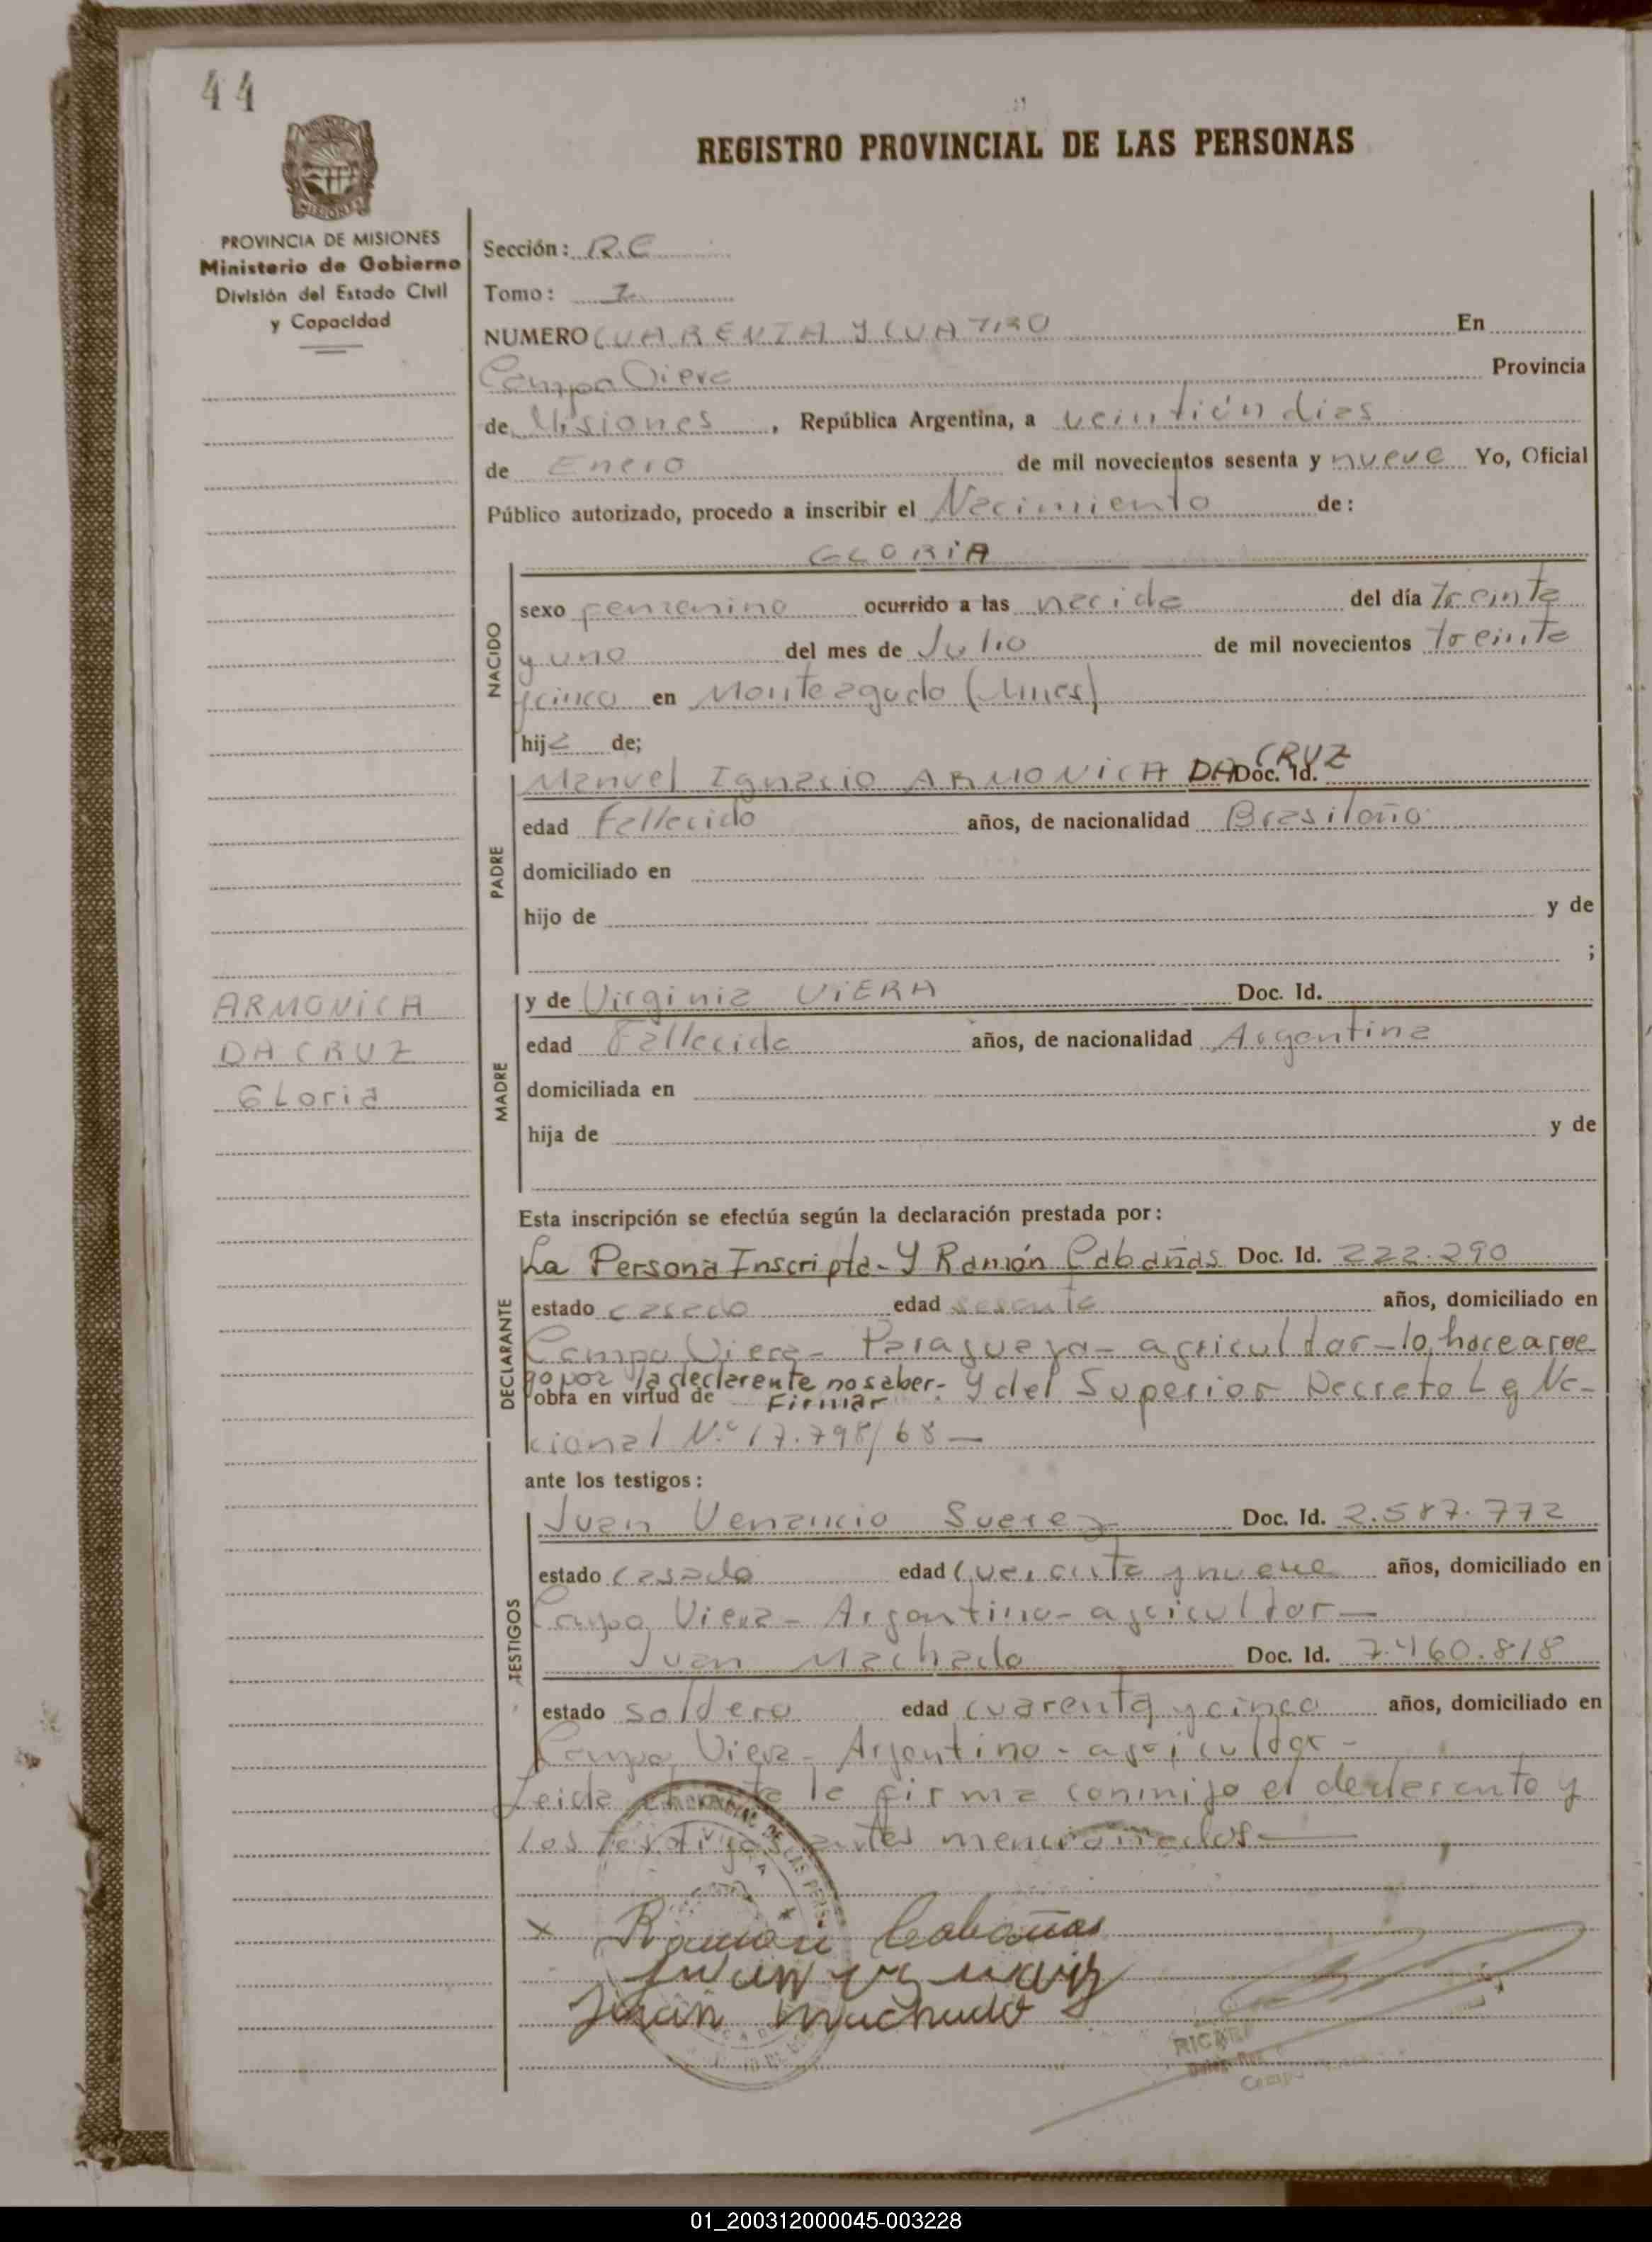 44
REGISTRO PROVINCIAL DE LAS PERSONAS
MISIONES
PROVINCIA DE MISIONES
Ministerio de Gobierno
División del Estado Civil
y Capacidad
Sección: R.C
Tomo: I
NUMERO CUARENTA Y CUATRO En
Campo Viera Provincia
de Misiones, República Argentina, a veintiún dias
de Enero de mil novecientos sesenta y nueve Yo, Oficial
Público autorizado, procedo a inscribir el Nacimiento de:
GLORIA
NACIDO
sexo femenino ocurrido a las nacida del día treinta
y uno del mes de Julio de mil novecientos treinta
y cinco en Monteagudo (Mnes)
hija de;
PADRE
Manuel Ignacio ARMONICA DA CRUZ Doc. Id.
edad Fallecido años, de nacionalidad Brasileño
domiciliado en
hijo de y de
;
ARMONICA
DA CRUZ
GLoria
MADRE
y de Virginia ViERA Doc. Id.
edad Fallecida años, de nacionalidad Argentina
domiciliada en
hija de y de
Esta inscripción se efectúa según la declaración prestada por:
DECLARANTE
La Persona Inscripta- Y Ramón Cabañas Doc. Id. 222.290
estado casado edad sesenta años, domiciliado en
Campo Viera- Paraguayo- agricultor- lo hace a rue
go por la declarente no saber-
obra en virtud de Firmar Y del Superior Decreto Ley Na-
cional N.º 17.798/68 —
ante los testigos:
TESTIGOS
Juan Venancio Suarez Doc. Id. 2.587.772
estado casado edad cuarenta y nueve años, domiciliado en
Campo Viera- Argentino- agricultor—
Juan Machado Doc. Id. 7.460.818
estado soltero edad cuarenta y cinco años, domiciliado en
Campo Viera- Argentino- agricultor-
Leida el acta la firma conmigo el declarante y
los testigos antes mencionados—
x Ramón Cabañas
Juan
Juan Machado
RICA
Campo
01_200312000045-003228